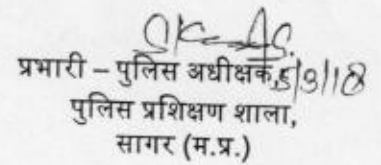 प्रभारी – पुलिस अधीक्षक, 5/3/18
पुलिस प्रशिक्षण शाला,
सागर (म.प्र.)